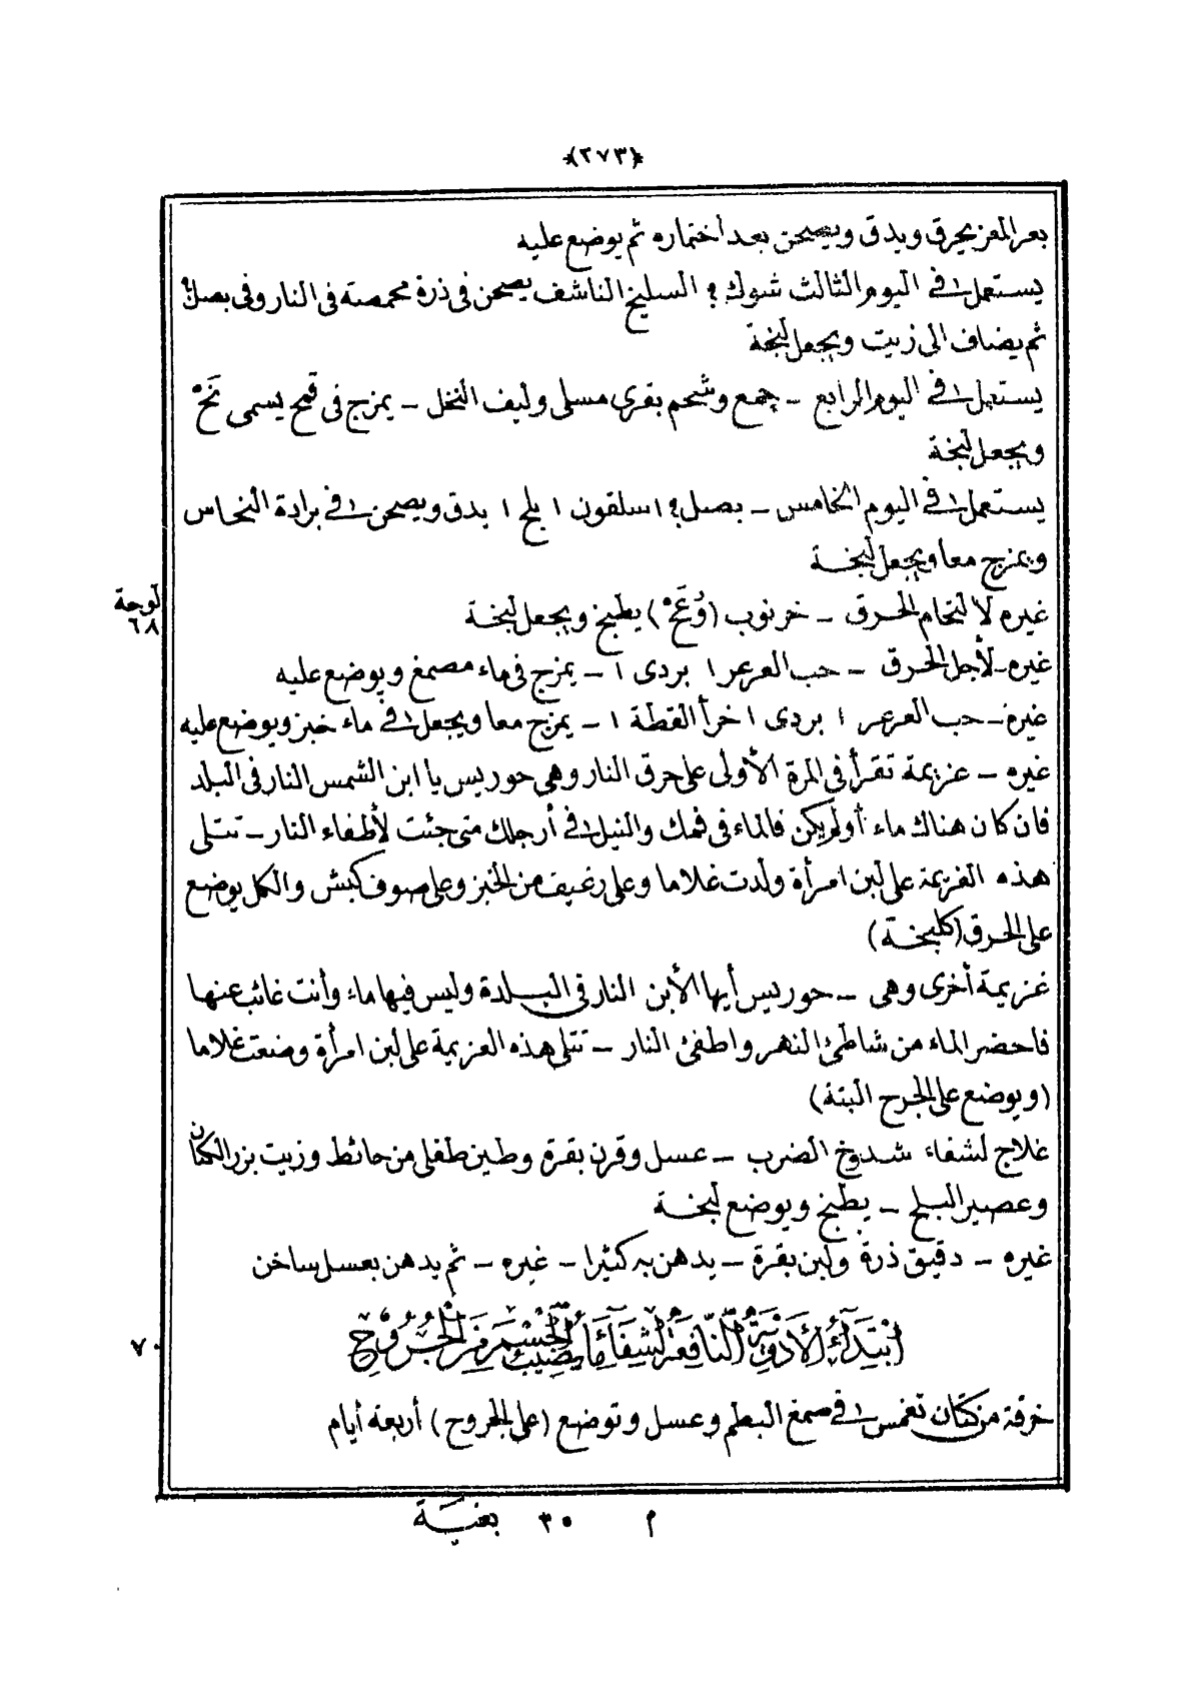 ﴿٢٧٣﴾
بعر المعز يحرق ويدق ويصحن بعد اختماره ثم يوضع عليه
يستعمل ١ في اليوم الثالث شوك ؟ السليخ الناشف يصحن في ذرة محمصته في النار وفي بصل ؟
ثم يضاف الى زيت ويجعل لبخة
يستعمل ١ في اليوم الرابع ـ جمع وشحم بقري مسلى وليف النخل ـ يمزج في قمح يسمى نَخْ
ويجعل لبخة
يستعمل ١ في اليوم الخامس ـ بصل ؟ ١ سلقون ١ بلح ١ يدق ويصحن ١ في برادة النحاس
ويمزج معا ويجعل لبخة
غيره لالتحام الحرق ـ خرنوب (وُعَحْ) يطبخ ويجعل لبخة
لوحة
٦٨
غيره ـ لأجل الحرق ـ حب العرعر ١ بردى ١ ـ يمزج في ماء مصمغ ويوضع عليه
غيره ـ حب العرعر ١ بردى ١ خرأ القطة ١ ـ يمزج معا ويجعل ١ في ماء خبز ويوضع عليه
غيره ـ عزيمة تقرأ في المرة الأولى على حرق النار وهي حوريس يا ابن الشمس النار في البلد
فان كان هناك ماء أو لم يكن فالماء في فمك والنيل ١ في أرجلك متى جئت لأطفاء النار ـ تتلى
هذه العزيمة على لبن امرأة ولدت غلاما وعلى رغيف من الخبز وعلى صوف كبش والكل يوضع
على الحرق (كلبخة)
عزيمة أخرى وهى ـ حوريس أيها الأبن النار في البلدة وليس فيها ماء وأنت غائب عنها
فاحضر الماء من شاطئ النهر واطفئ النار ـ تتلى هذه العزيمة على لبن امرأة وضعت غلاما
(ويوضع على الجرح البتة)
علاج لشفاء شدوخ الضرب ـ عسل وقرن بقرة وطين طفلى من حائط وزيت بزر الكتان
وعصير البلح ـ يطبخ ويوضع لبخة
غيره ـ دقيق ذرة ولبن بقرة ـ يدهن به كثيرا ـ غيره ـ ثم يدهن بعسل ساخن
ابْتِدَاءُ الأَدْوِيَةِ النَّافِعَةِ لِشِفَاءِ مَا يُصِيبُ الجِسْمَ مِنَ الْجُرُوْحِ
٧٠
خرقة من كتان تغمس ١ في صمغ البطم وعسل وتوضع (على الجروح) أربعة أيام
م ٣٥ بغيــة